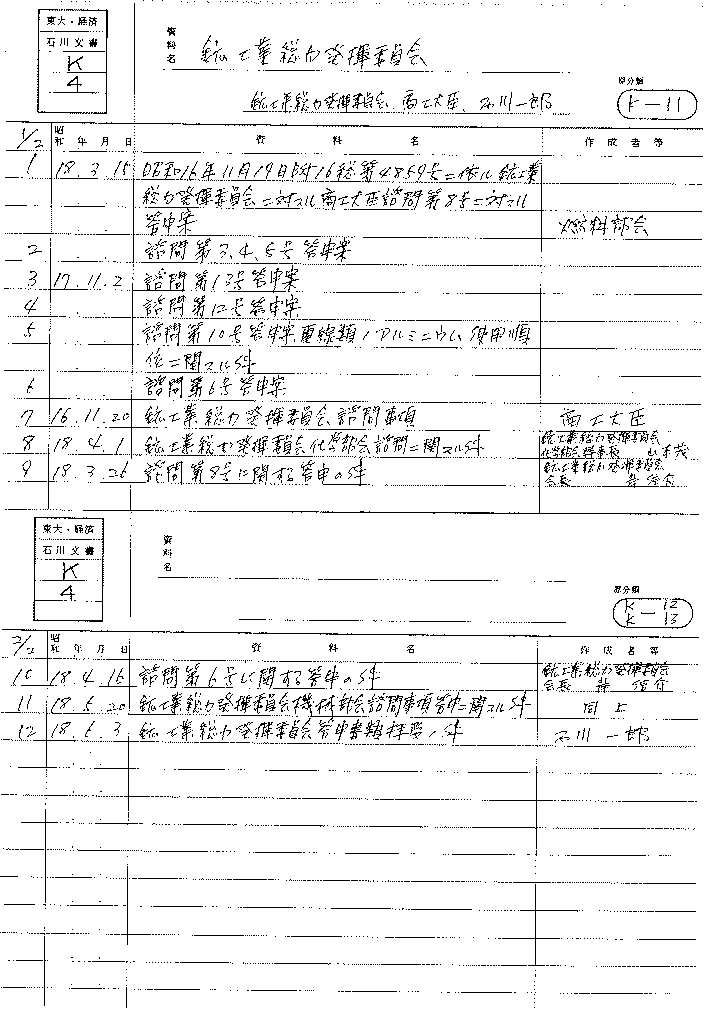 東大・経済
石川文書
K
4
資料名 鉱工業総力発揮委員会
鉱工業総力発揮委員会、商工大臣、石川一郎
原分類
K-11
1/2 昭和 年 月 日 資料名 作成者等
1 18.3.15 昭和16年11月19日附16総第4859号ニ依ル鉱工業
総力発揮委員会ニ対スル商工大臣諮問第8号ニ対スル
答申案 燃料部会
2 諮問第3、4、5号答申案
3 17.11.2 諮問第13号答申案
4 諮問第12号答申案
5 諮問第10号答申案電線類ノアルミニウム使用順
位ニ関スル件
6 諮問第6号答申案
7 16.11.20 鉱工業総力発揮委員会諮問事項 商工大臣
8 18.4.1 鉱工業総力発揮委員会化学部会諮問ニ関スル件 鉱工業総力発揮委員会
化学部会理事長 山本茂
9 18.3.26 諮問第8号に関する答申の件 鉱工業総力発揮委員会
会長
東大・経済
石川文書
K
4
資料名
原分類
K-12
K-13
2/2 昭和 年 月 日 資料名 作成者等
10 18.4.15 諮問第6号に関する答申の件 鉱工業総力発揮委員会
会長
11 18.5.20 鉱工業総力発揮委員会機械部会諮問事項答申ニ関スル件 同上
12 18.6.3 鉱工業総力発揮委員会答申書類拝受ノ件 石川一郎